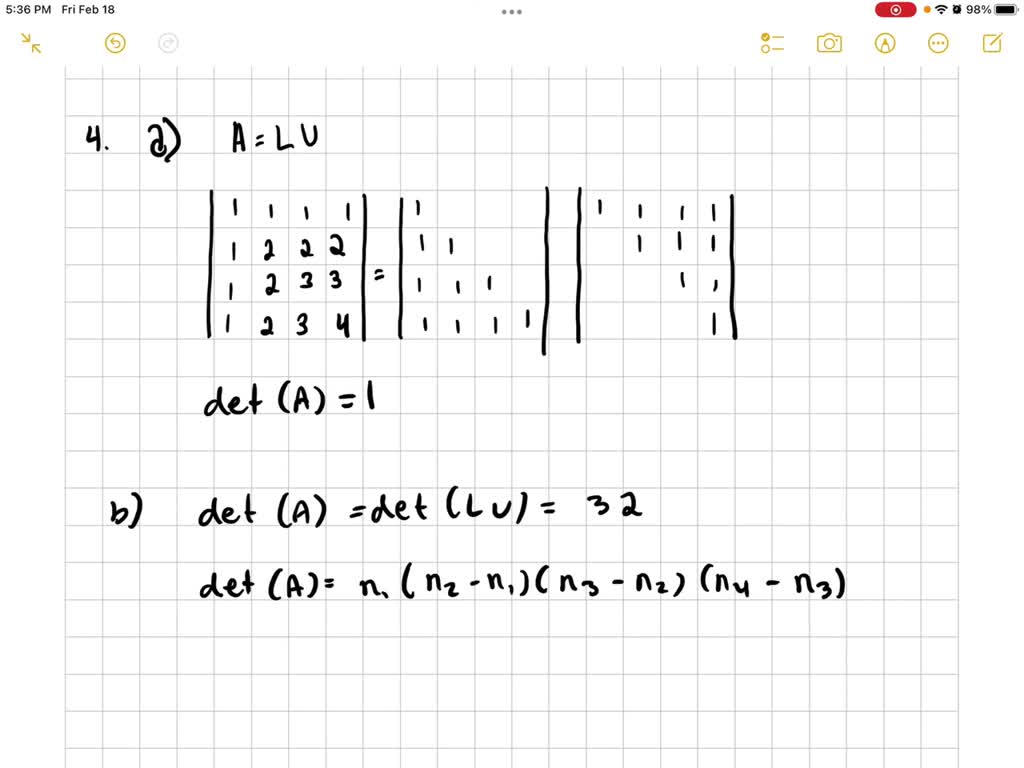 5:36 PM Fri Feb 18 98%
4. a) A = L U
| 1 1 1 1 | | 1 | | 1 1 1 1 |
| 1 2 2 2 | | 1 1 | | 1 1 1 |
| 1 2 3 3 | = | 1 1 1 | | 1 1 |
| 1 2 3 4 | | 1 1 1 1 | | 1 |
det (A) = 1
b) det (A) = det (L U) = 32
det (A) = n₁ (n₂ - n₁)(n₃ - n₂) (n₄ - n₃)